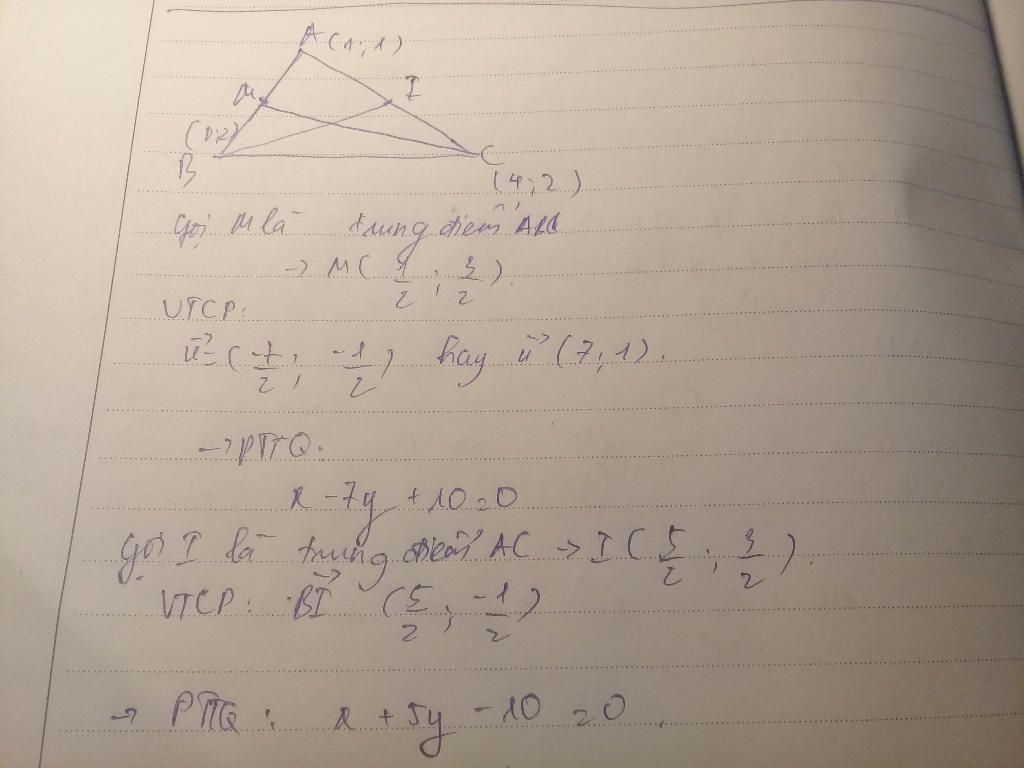 A (1; 1)
M
I
(0; 2)
B
C
(4; 2)
Gọi M là trung điểm
→ M ( 1/2 ; 3/2 ).
VTCP:
u⃗ = ( -7/2 ; -1/2 ) hay u⃗ (7; 1).
→ PTTQ.
x - 7y + 10 = 0
Gọi I là trung điểm AC → I ( 5/2 ; 3/2 ).
VTCP: BI⃗ ( 5/2 ; -1/2 )
→ PTTQ : x + 5y - 10 = 0.